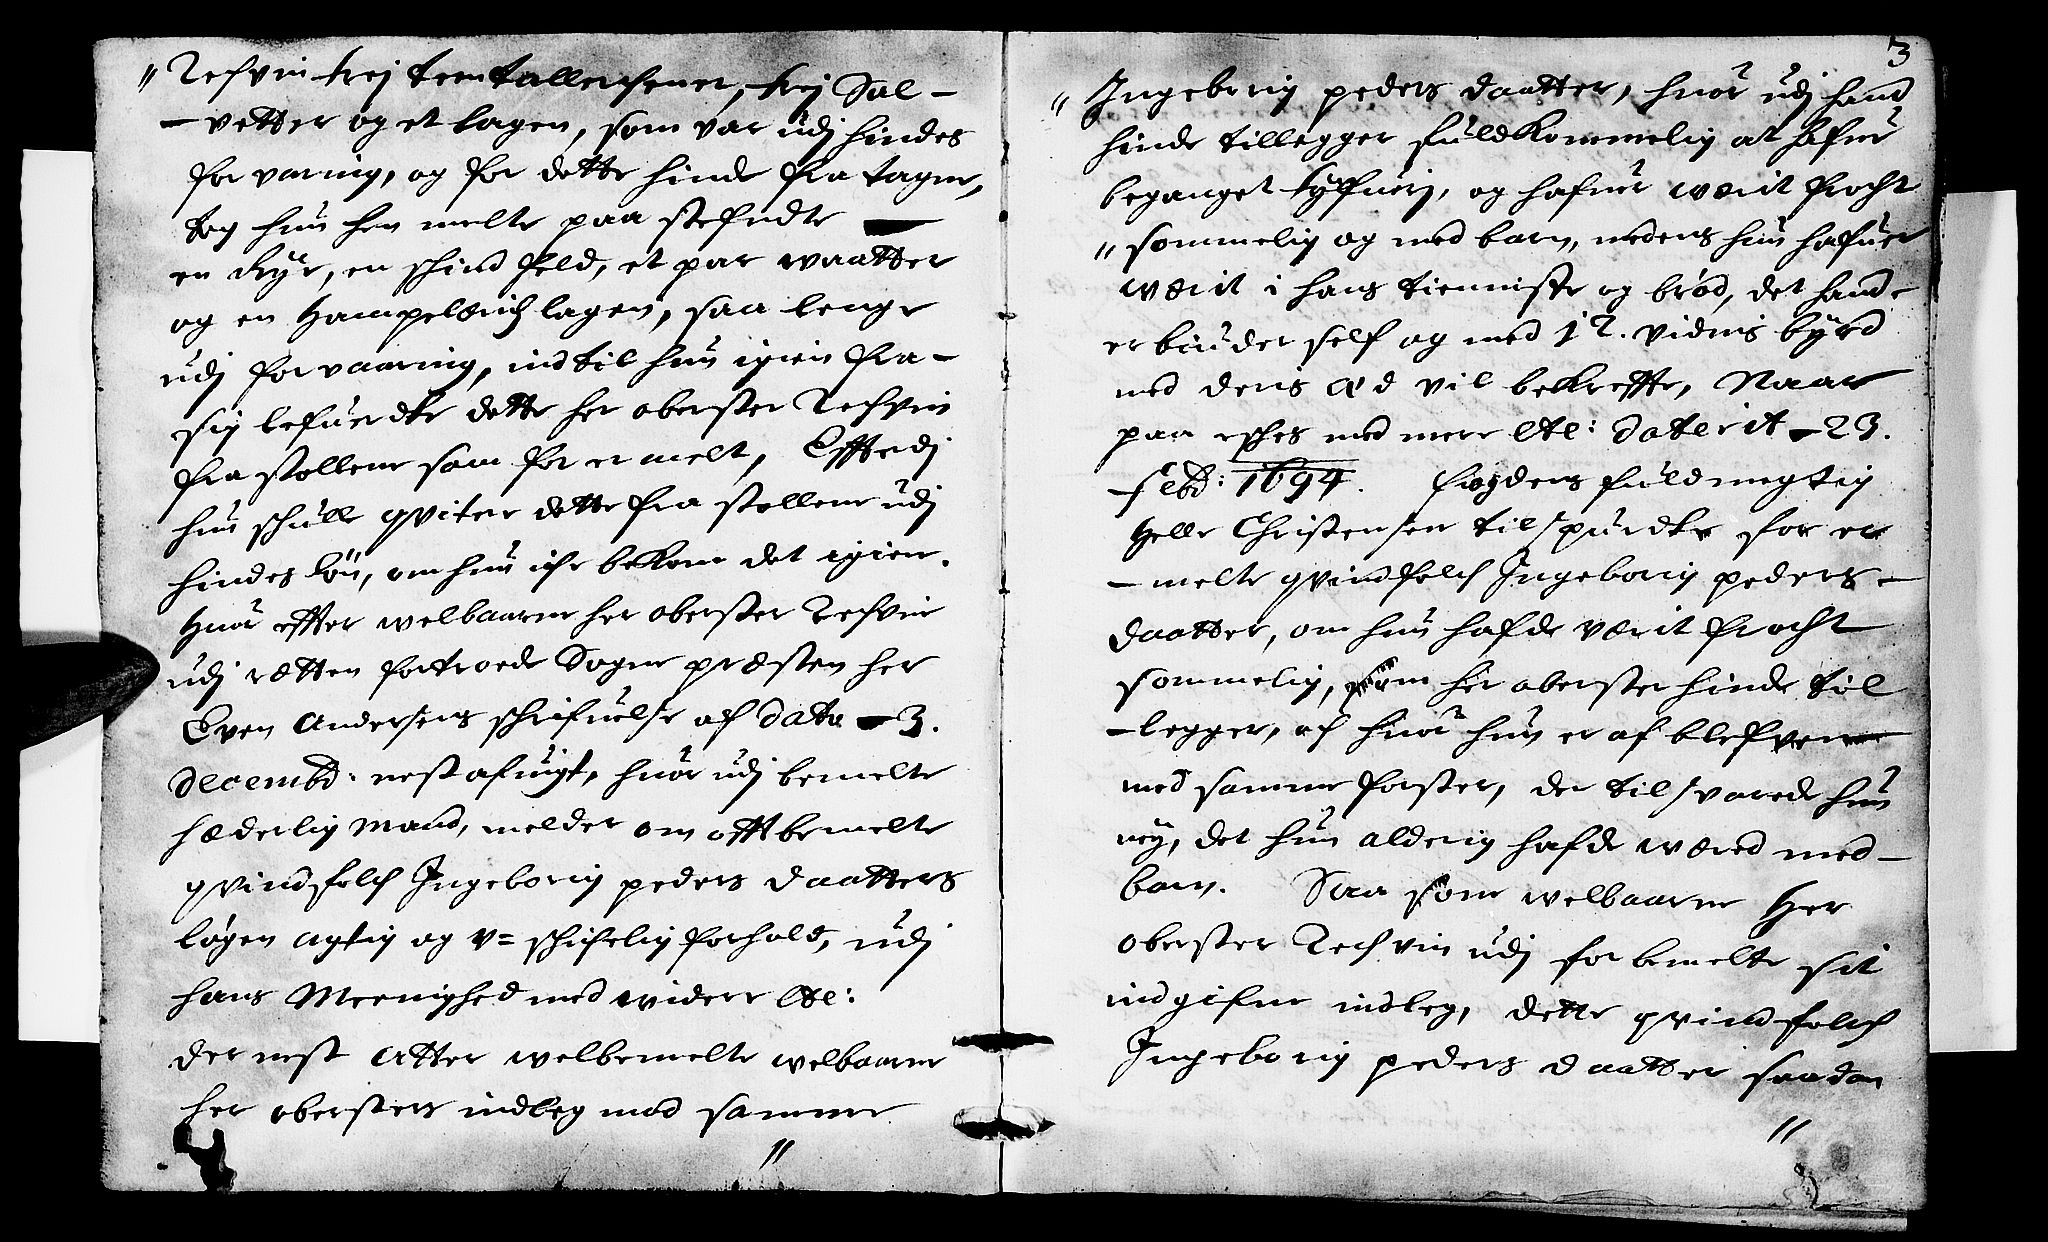 " Rechvin trej teentallerchener, trej Sal-
- vetter og et lagen, som var udj hindes
forvaring, og for dette hinde fra tagne,
tog hun hen melte paa stefndte
en dyne, en schind feld, et par waatter
og en Hampelærids lagen, saa lenge
udj forvaaring, indtil hun igien fra-
sig lefuerdte dette her oberster Rechvin
fra stollene som for er melt, Effterdj
hun schulle qvitere dette fra stollene udj
hindes Løn, om hun iche bekom det igien.
Huor effter welbaarne her oberster Rechvin
udj rætten fortroede Sogne præsten her
Even Andersens schrifuelse af dato 3.
decembr: nest afuigt, huor udj bemelte
hæderlig Mand, melder om offtbemelte
qvindfolch Ingeborig peders daatters
løgen agtig og v= schichelig forhold, udj
hans Meenighed med widere etc:
der nest atter welbemelte welbaarne
her obersters indleg med samme
"
3
" Ingeborig peders daatter, huor udj hand
hinde tillegger fuldkommelig at hafue
beganget tyfuerj, og hafuer wærit frocht
" sommelig og med barn, medens hun hafuer
wærit i hans tienniste og brød, det hand-
erbiuder self og med 12. vidnis byrd
med deris æd vil bekreffte, Naar
paa esches med mere etc: daterit 23.
Febr: 1694. fogdens fuldmegtig
Helle Christensen tilspurdte for er
- melte qvindfolch Ingeborig peders-
daatter, om hun hafde værit frocht
sommelig, som her oberster hinde til
- legger, och huor hun er af blefven
med samme foster, der tilsvarede hun
nej, det hun alderig hafde wæred med-
barn. Saa som welbaarne Her
oberster Rechvin udj for bemelte sit
indgifne indleg, dette qvindfolch
Ingeborig peders daatter saadan
"